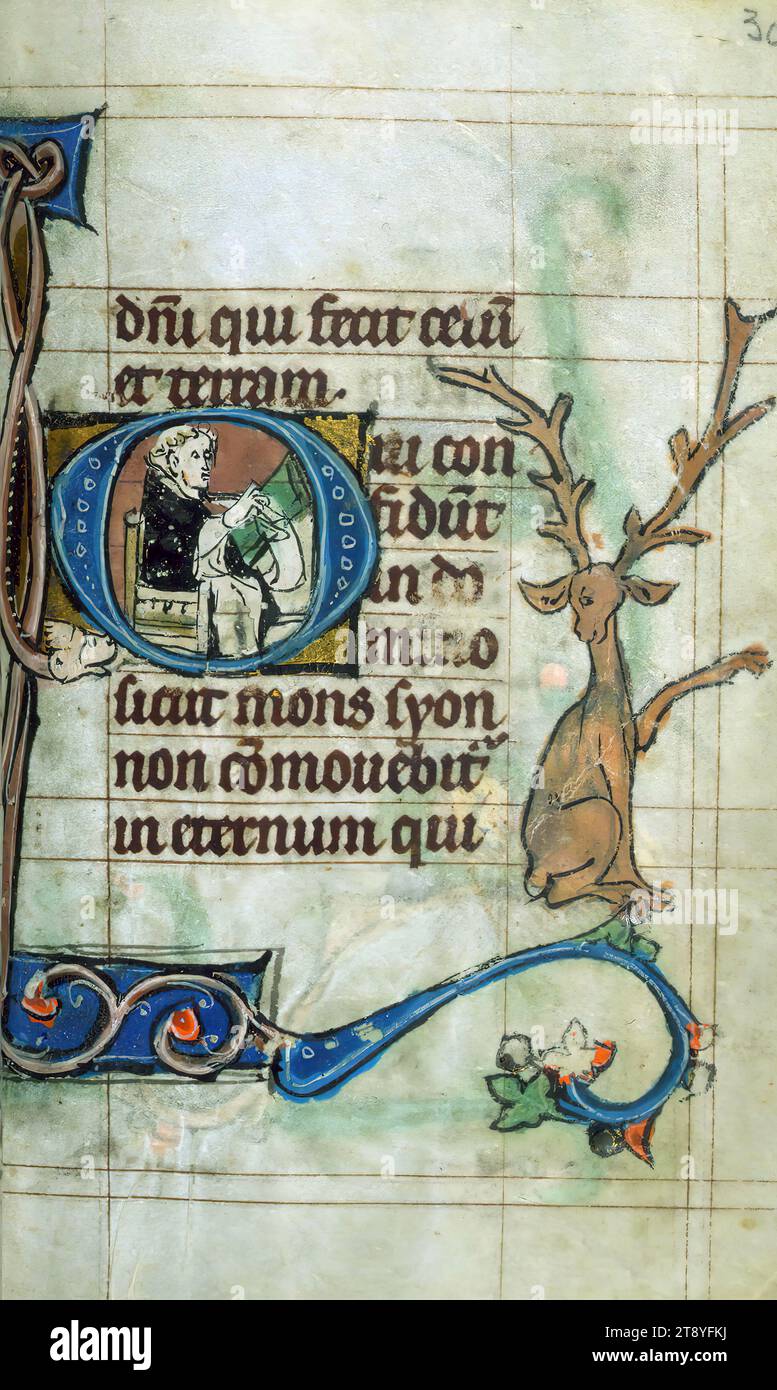 30
dn̄i qui fecit celū
et terram.
Qui con
fidūt
in do
mino
sicut mons syon
non cōmouebit᷑
in eternum qui
alamy
Image ID: 2T8YFKJ
www.alamy.com